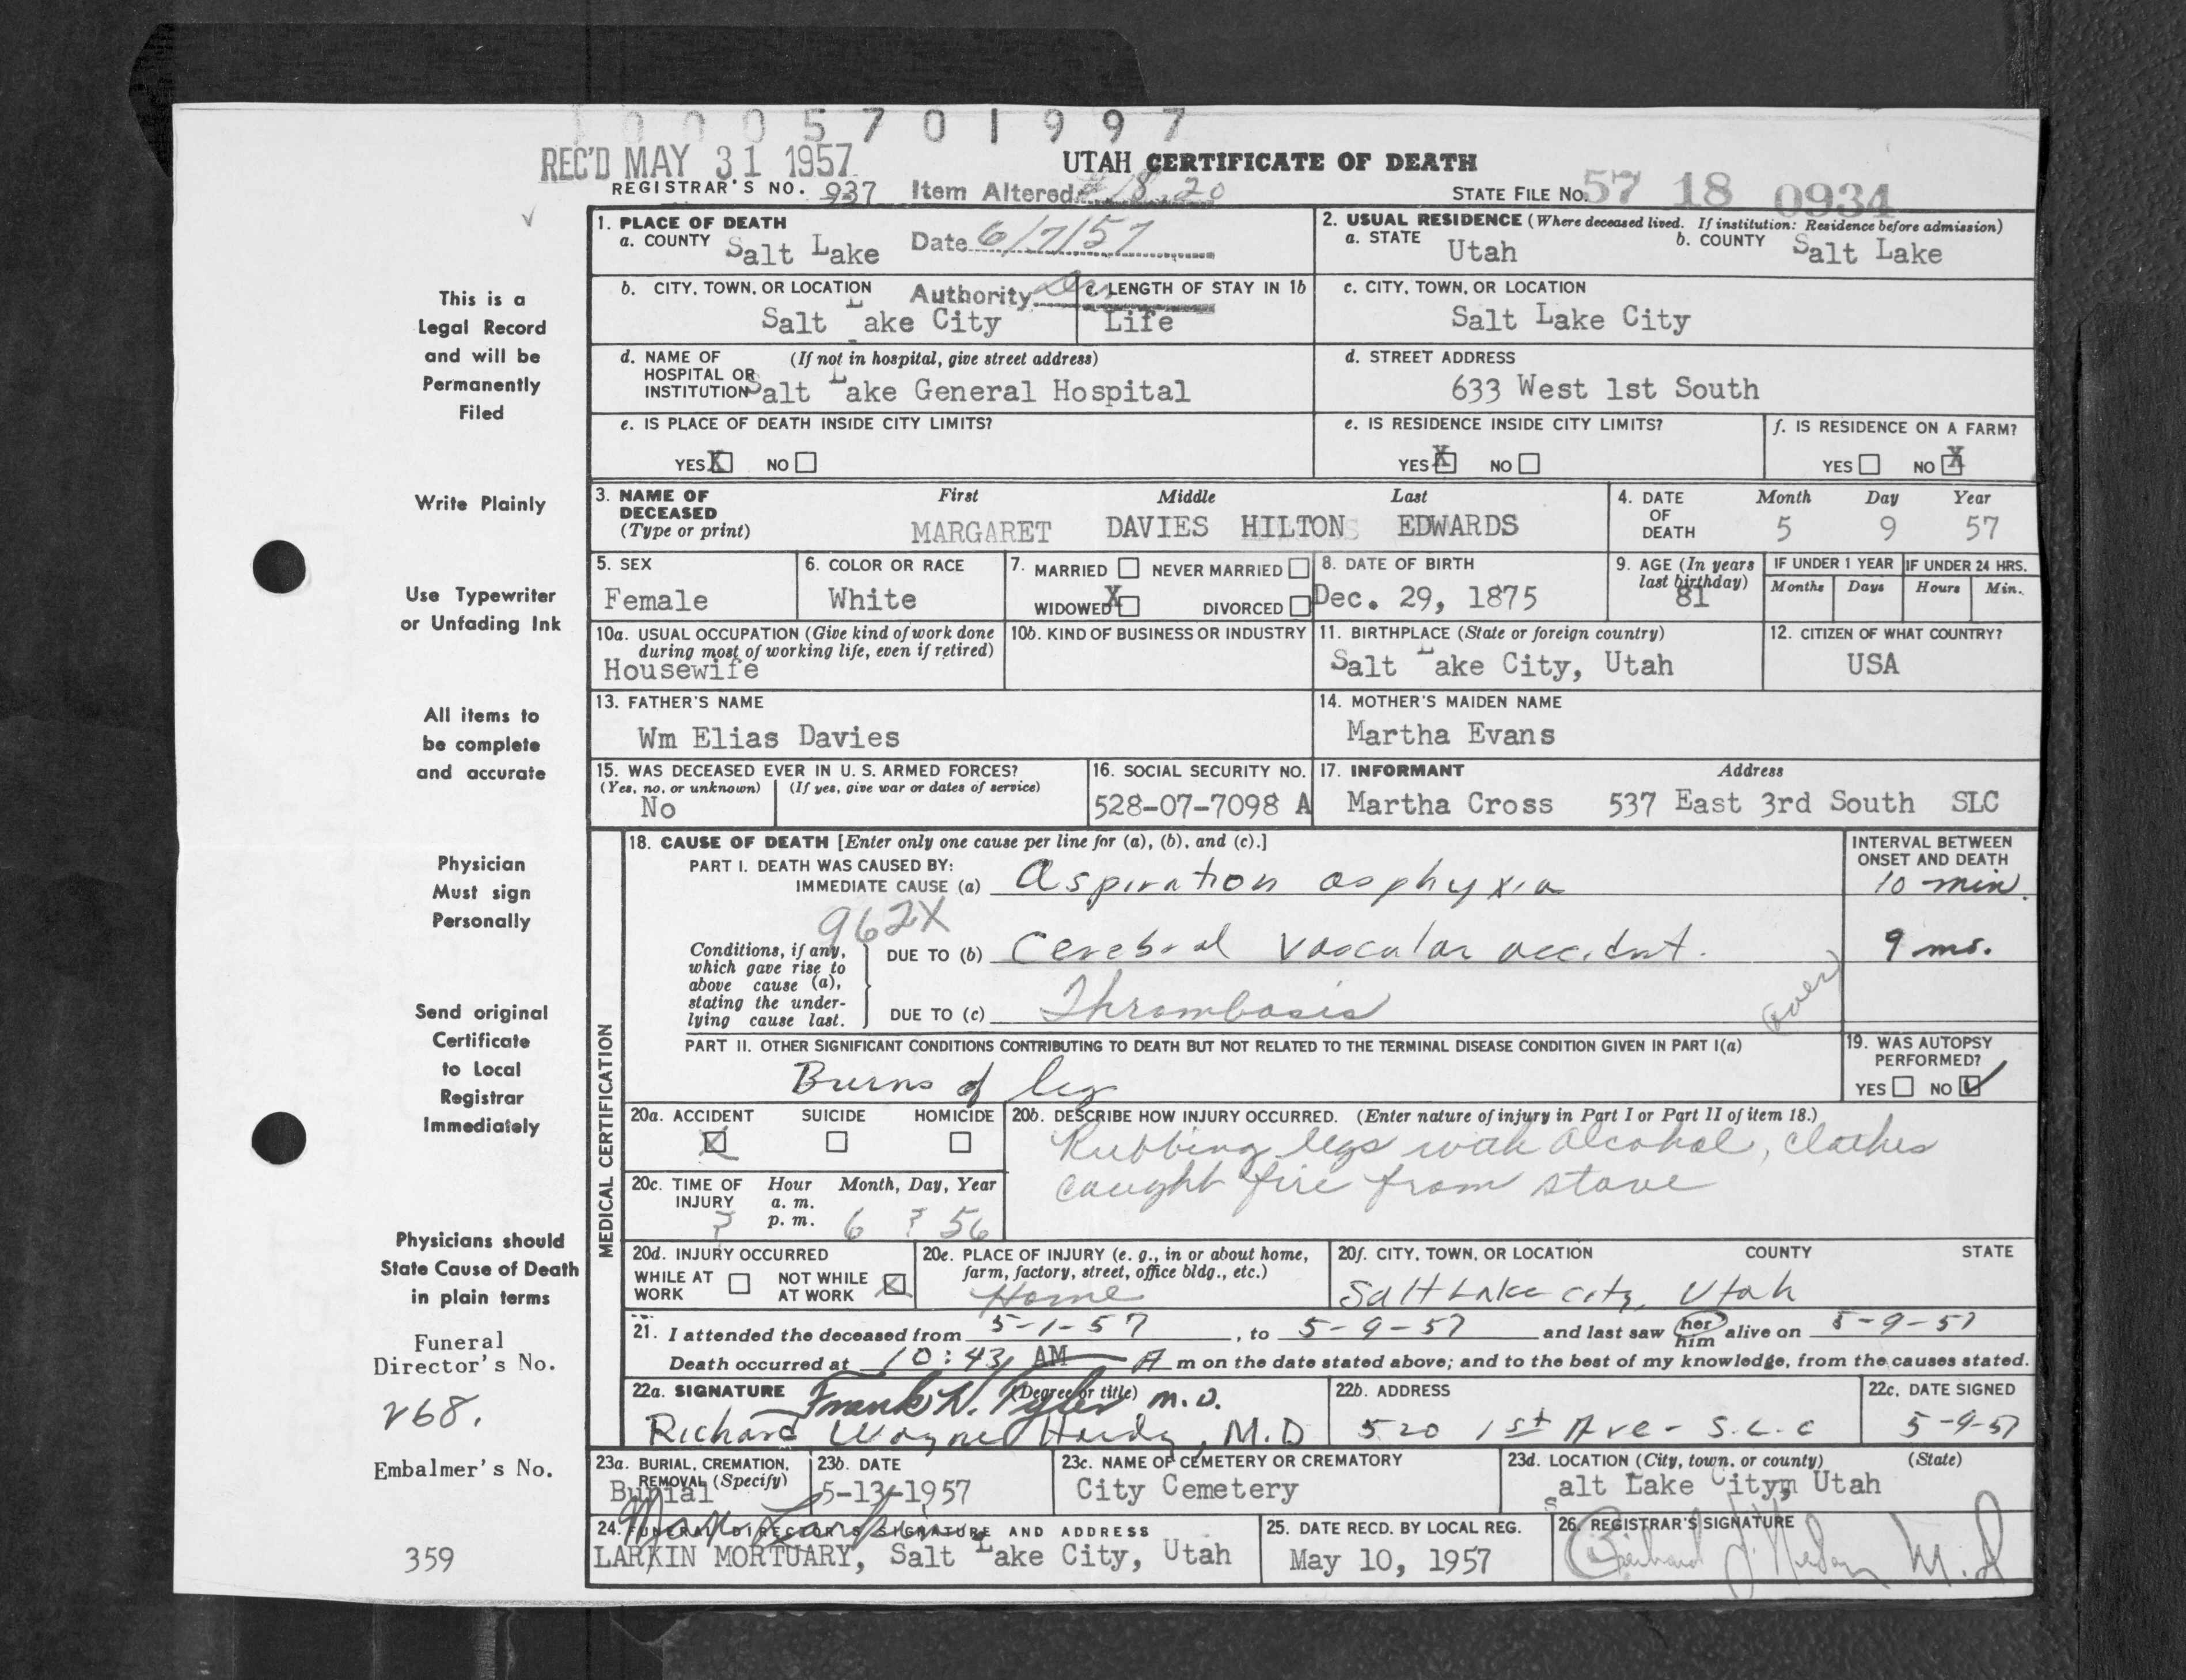 10005701997
REC'D MAY 31 1957
UTAH CERTIFICATE OF DEATH
REGISTRAR'S NO. 937 Item Altered # 18, 20
STATE FILE NO. 57 18 0934
1. PLACE OF DEATH
a. COUNTY Salt Lake Date 6/7/57
2. USUAL RESIDENCE (Where deceased lived. If institution: Residence before admission)
a. STATE Utah b. COUNTY Salt Lake
b. CITY, TOWN, OR LOCATION Salt Lake City Authority
c. LENGTH OF STAY IN 1b Life
c. CITY, TOWN, OR LOCATION
Salt Lake City
d. NAME OF HOSPITAL OR INSTITUTION (If not in hospital, give street address)
Salt Lake General Hospital
d. STREET ADDRESS
633 West 1st South
e. IS PLACE OF DEATH INSIDE CITY LIMITS?
YES X NO
e. IS RESIDENCE INSIDE CITY LIMITS?
YES X NO
f. IS RESIDENCE ON A FARM?
YES NO X
3. NAME OF DECEASED (Type or print)
First Middle Last
MARGARET DAVIES HILTON EDWARDS
4. DATE OF DEATH Month Day Year
5 9 57
5. SEX
Female
6. COLOR OR RACE
White
7. MARRIED NEVER MARRIED
WIDOWED X DIVORCED
8. DATE OF BIRTH
Dec. 29, 1875
9. AGE (In years last birthday)
81
IF UNDER 1 YEAR IF UNDER 24 HRS.
Months Days Hours Min.
10a. USUAL OCCUPATION (Give kind of work done during most of working life, even if retired)
Housewife
10b. KIND OF BUSINESS OR INDUSTRY
11. BIRTHPLACE (State or foreign country)
Salt Lake City, Utah
12. CITIZEN OF WHAT COUNTRY?
USA
13. FATHER'S NAME
Wm Elias Davies
14. MOTHER'S MAIDEN NAME
Martha Evans
15. WAS DECEASED EVER IN U. S. ARMED FORCES?
(Yes, no, or unknown) (If yes, give war or dates of service)
No
16. SOCIAL SECURITY NO.
528-07-7098 A
17. INFORMANT Address
Martha Cross 537 East 3rd South SLC
MEDICAL CERTIFICATION
18. CAUSE OF DEATH [Enter only one cause per line for (a), (b), and (c).]
INTERVAL BETWEEN ONSET AND DEATH
PART I. DEATH WAS CAUSED BY:
IMMEDIATE CAUSE (a) Aspiration asphyxia 10 min.
962X
Conditions, if any, which gave rise to above cause (a), stating the underlying cause last.
DUE TO (b) Cerebral vascular accident. 9 mo.
DUE TO (c) Thrombosis
(over)
PART II. OTHER SIGNIFICANT CONDITIONS CONTRIBUTING TO DEATH BUT NOT RELATED TO THE TERMINAL DISEASE CONDITION GIVEN IN PART I(a)
Burns of leg
19. WAS AUTOPSY PERFORMED?
YES NO ✓
20a. ACCIDENT SUICIDE HOMICIDE
X
20b. DESCRIBE HOW INJURY OCCURRED. (Enter nature of injury in Part I or Part II of item 18.)
Rubbing legs with alcohol, clothes
caught fire from stove
20c. TIME OF INJURY Hour Month, Day, Year
a. m.
? p. m. 6 ? 56
20d. INJURY OCCURRED
WHILE AT WORK NOT WHILE AT WORK X
20e. PLACE OF INJURY (e. g., in or about home, farm, factory, street, office bldg., etc.)
Home
20f. CITY, TOWN, OR LOCATION COUNTY STATE
Salt Lake City, Utah
21. I attended the deceased from 5-1-57, to 5-9-57 and last saw her him alive on 5-9-57
Death occurred at 10:43 AM A m on the date stated above; and to the best of my knowledge, from the causes stated.
22a. SIGNATURE (Degree or title)
Frank H. Tyler M.D.
Richard Wayne Hardy, M.D
22b. ADDRESS
520 1st Ave - S.L.C
22c. DATE SIGNED
5-9-57
23a. BURIAL, CREMATION, REMOVAL (Specify)
Burial
23b. DATE
5-13-1957
23c. NAME OF CEMETERY OR CREMATORY
City Cemetery
23d. LOCATION (City, town, or county) (State)
Salt Lake City, Utah
24. FUNERAL DIRECTOR'S SIGNATURE AND ADDRESS
LARKIN MORTUARY, Salt Lake City, Utah
25. DATE RECD. BY LOCAL REG.
May 10, 1957
26. REGISTRAR'S SIGNATURE
M.D
This is a
Legal Record
and will be
Permanently
Filed
Write Plainly
Use Typewriter
or Unfading Ink
All items to
be complete
and accurate
Physician
Must sign
Personally
Send original
Certificate
to Local
Registrar
Immediately
Physicians should
State Cause of Death
in plain terms
Funeral
Director's No.
268.
Embalmer's No.
359